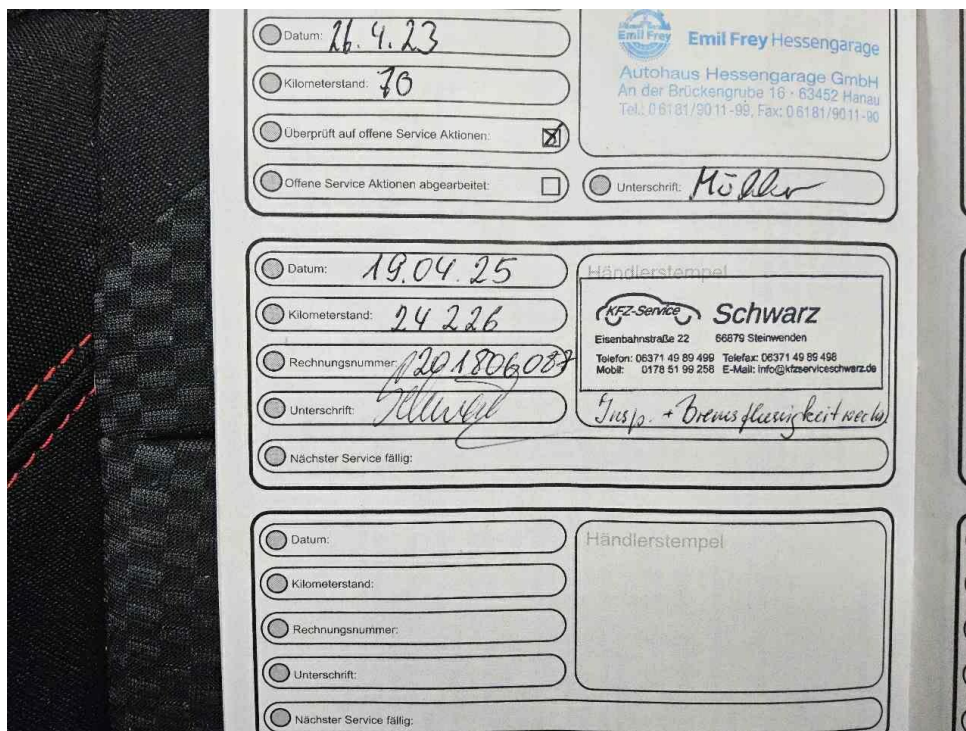 Datum: 26.4.23
Kilometerstand: 70
Überprüft auf offene Service Aktionen:
Offene Service Aktionen abgearbeitet:
Emil Frey
Emil Frey Hessengarage
Autohaus Hessengarage GmbH
An der Brückengrube 16 · 63452 Hanau
Tel.: 06181/9011-99, Fax: 06181/9011-90
Unterschrift:
Datum: 19.04.25
Kilometerstand: 24 226
Rechnungsnummer: 201806087
Unterschrift:
Nächster Service fällig:
Händlerstempel
KFZ-Service Schwarz
Eisenbahnstraße 22 66879 Steinwenden
Telefon: 06371 49 89 499 Telefax: 06371 49 89 498
Mobil: 0178 51 99 258 E-Mail: info@kfzserviceschwarz.de
Insp. + Bremsflüssigkeit
Datum:
Kilometerstand:
Rechnungsnummer:
Unterschrift:
Nächster Service fällig:
Händlerstempel